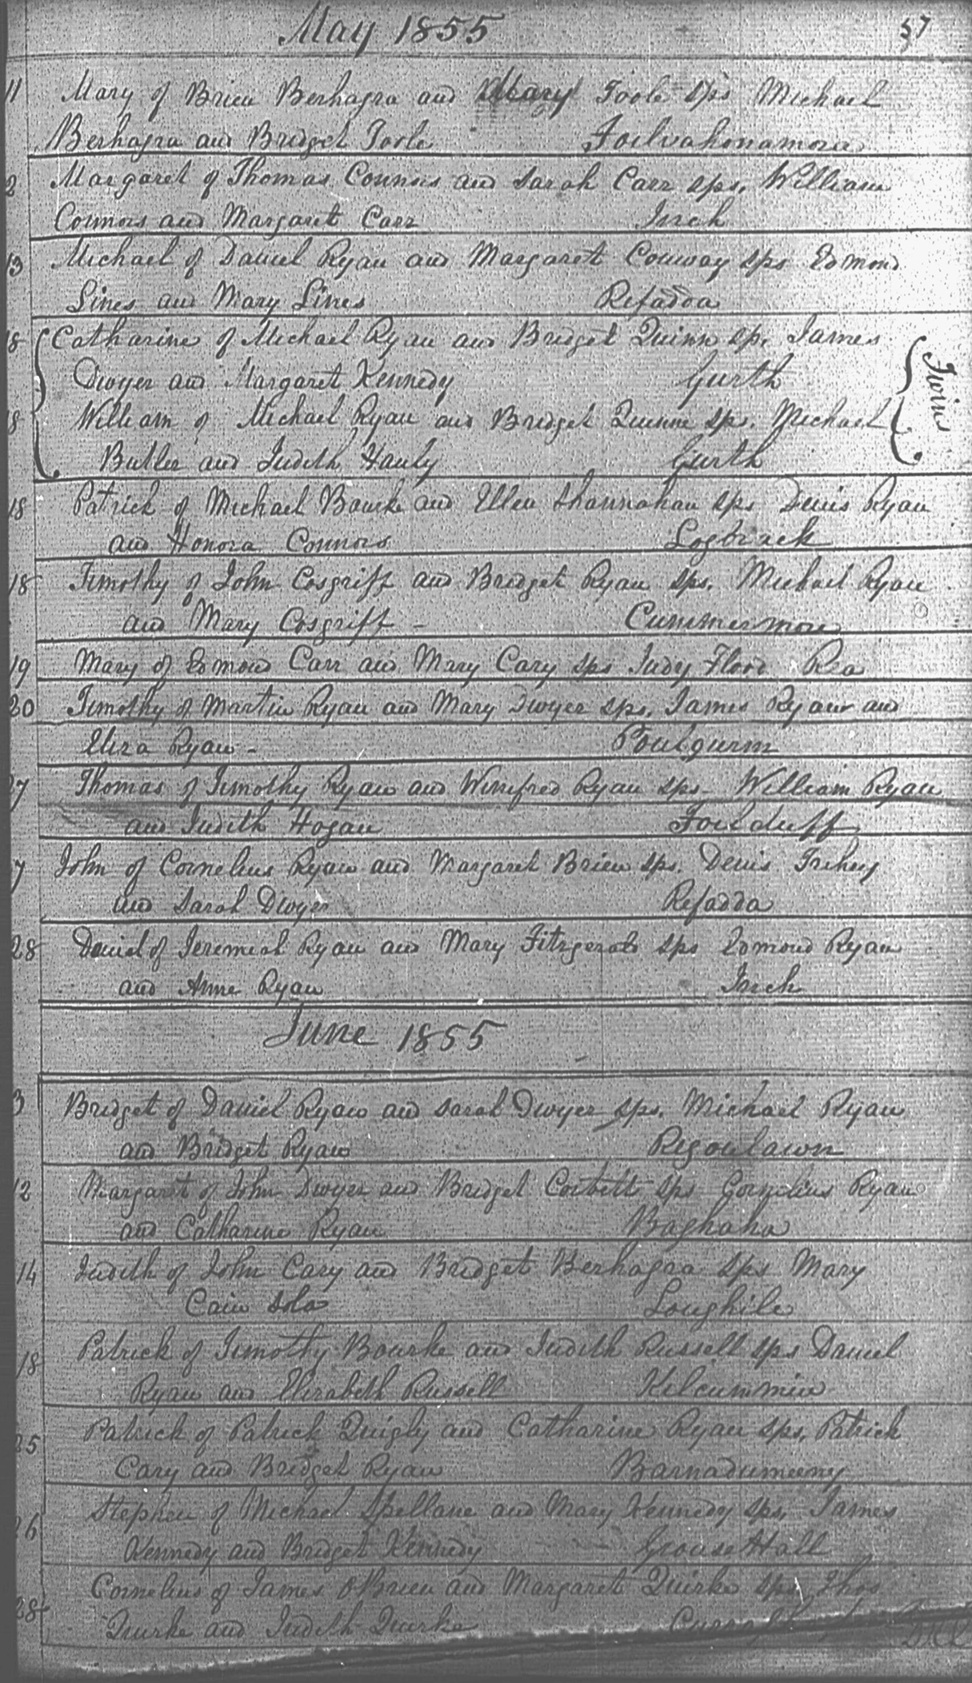 May 1855 57
11 Mary of Brien Berhagra and Mary Toole sps Michael
Berhagra and Bridget Toole Foilvahonamora
2 Margaret of Thomas Connors and Sarah Carr sps. William
Connors and Margaret Carr Inch
13 Michael of Daniel Ryan and Margaret Conway sps Edmond
Lines and Mary Lines Refadda
18 Catharine of Michael Ryan and Bridget Quinn sp. James
Dwyer and Margaret Kennedy Gurth
Twins
18 William of Michael Ryan and Bridget Quinne sp. Michael
Butler and Judith Hauly Gurth
18 Patrick of Michael Bourke and Ellen Shannahan sps Denis Ryan
and Honora Connors Logbrack
18 Timothy of John Cosgriff and Bridget Ryan sps. Michael Ryan
and Mary Cosgriff - Cummermore
19 Mary of Edmond Carr and Mary Cary sps Judy Flood Rea
20 Timothy of Martin Ryan and Mary Dwyer sps. James Ryan and
Eliza Ryan - Poulgurm
27 Thomas of Timothy Ryan and Winifred Ryan sps- William Ryan
and Judith Hogan Foilduff
7 John of Cornelius Ryan and Margaret Brien sps. Denis Trehey
and Sarah Dwyer Refadda
28 Daniel of Jeremiah Ryan and Mary Fitzgerald sps Edmond Ryan
and Anne Ryan Inch
June 1855
3 Bridget of Daniel Ryan and Sarah Dwyer sps. Michael Ryan
and Bridget Ryan Regoulawn
12 Margaret of John Dwyer and Bridget Corbitt sps Cornelius Ryan
and Catharine Ryan Baghaha
14 Judith of John Cary and Bridget Berhagra sps Mary
Cain Sola Loughile
18 Patrick of Timothy Bourke and Judith Russell sps Daniel
Ryan and Elizabeth Russell Kilcummin
25 Patrick of Patrick Quigly and Catharine Ryan sps. Patrick
Cary and Bridget Ryan Barnadumeeny
26 Stephen of Michael Spellane and Mary Kennedy sps. James
Kennedy and Bridget Kennedy Grouse Hall
28 Cornelius of James OBrien and Margaret Quirke sps Thos
Quirke and Judith Quirke